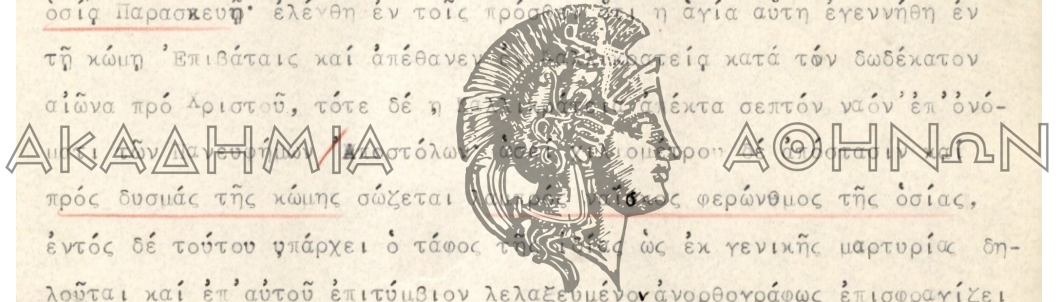 ὁσίᾳ Παρασκευῇ· ἐλέχθη ἐν τοῖς πρόσθεν ὅτι ἡ ἁγία αὕτη ἐγεννήθη ἐν
τῇ κώμῃ Ἐπιβάταις καί ἀπέθανεν ἐν κατά τόν δωδέκατον
αἰῶνα πρό Χριστοῦ, τότε δέ ἡ σεπτόν ναόν ἐπ' ὀνό-
ματι τῶν πανευφήμων Ἀποστόλων καί
ΑΚΑΔΗΜΙΑ ΑΘΗΝΩΝ
πρός δυσμάς τῆς κώμης σώζεται φερώνυμος τῆς ὁσίας,
ἐντός δέ τούτου ὑπάρχει ὁ τάφος τῆς ὡς ἐκ γενικῆς μαρτυρίας δη-
λοῦται καί ἐπ' αὐτοῦ ἐπιτύμβιον λελαξευμένον ἀνορθογράφως ἐπισφραγίζει